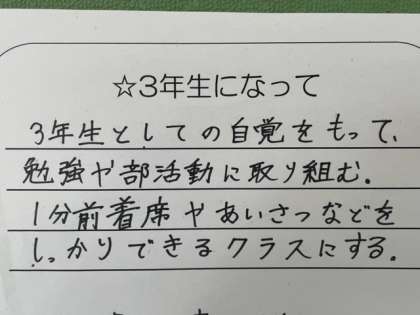 ☆3年生になって
3年生としての自覚をもって、
勉強や部活動に取り組む.
1分前着席やあいさつなどを
しっかりできるクラスにする.